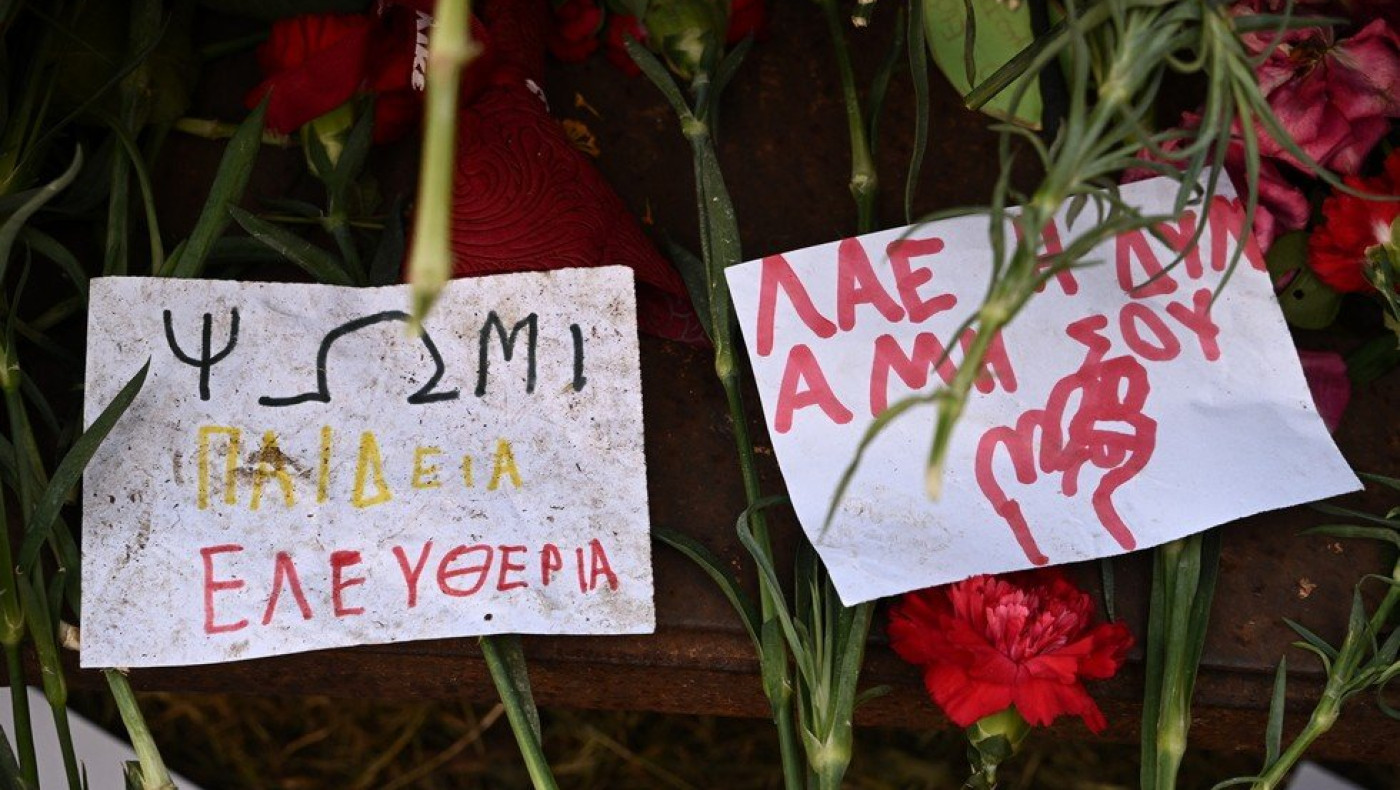 ΨΩΜΙ
ΠΑΙΔΕΙΑ
ΕΛΕΥΘΕΡΙΑ
ΛΑΕ Η ΔΥΝ
ΑΜΗ ΣΟΥ